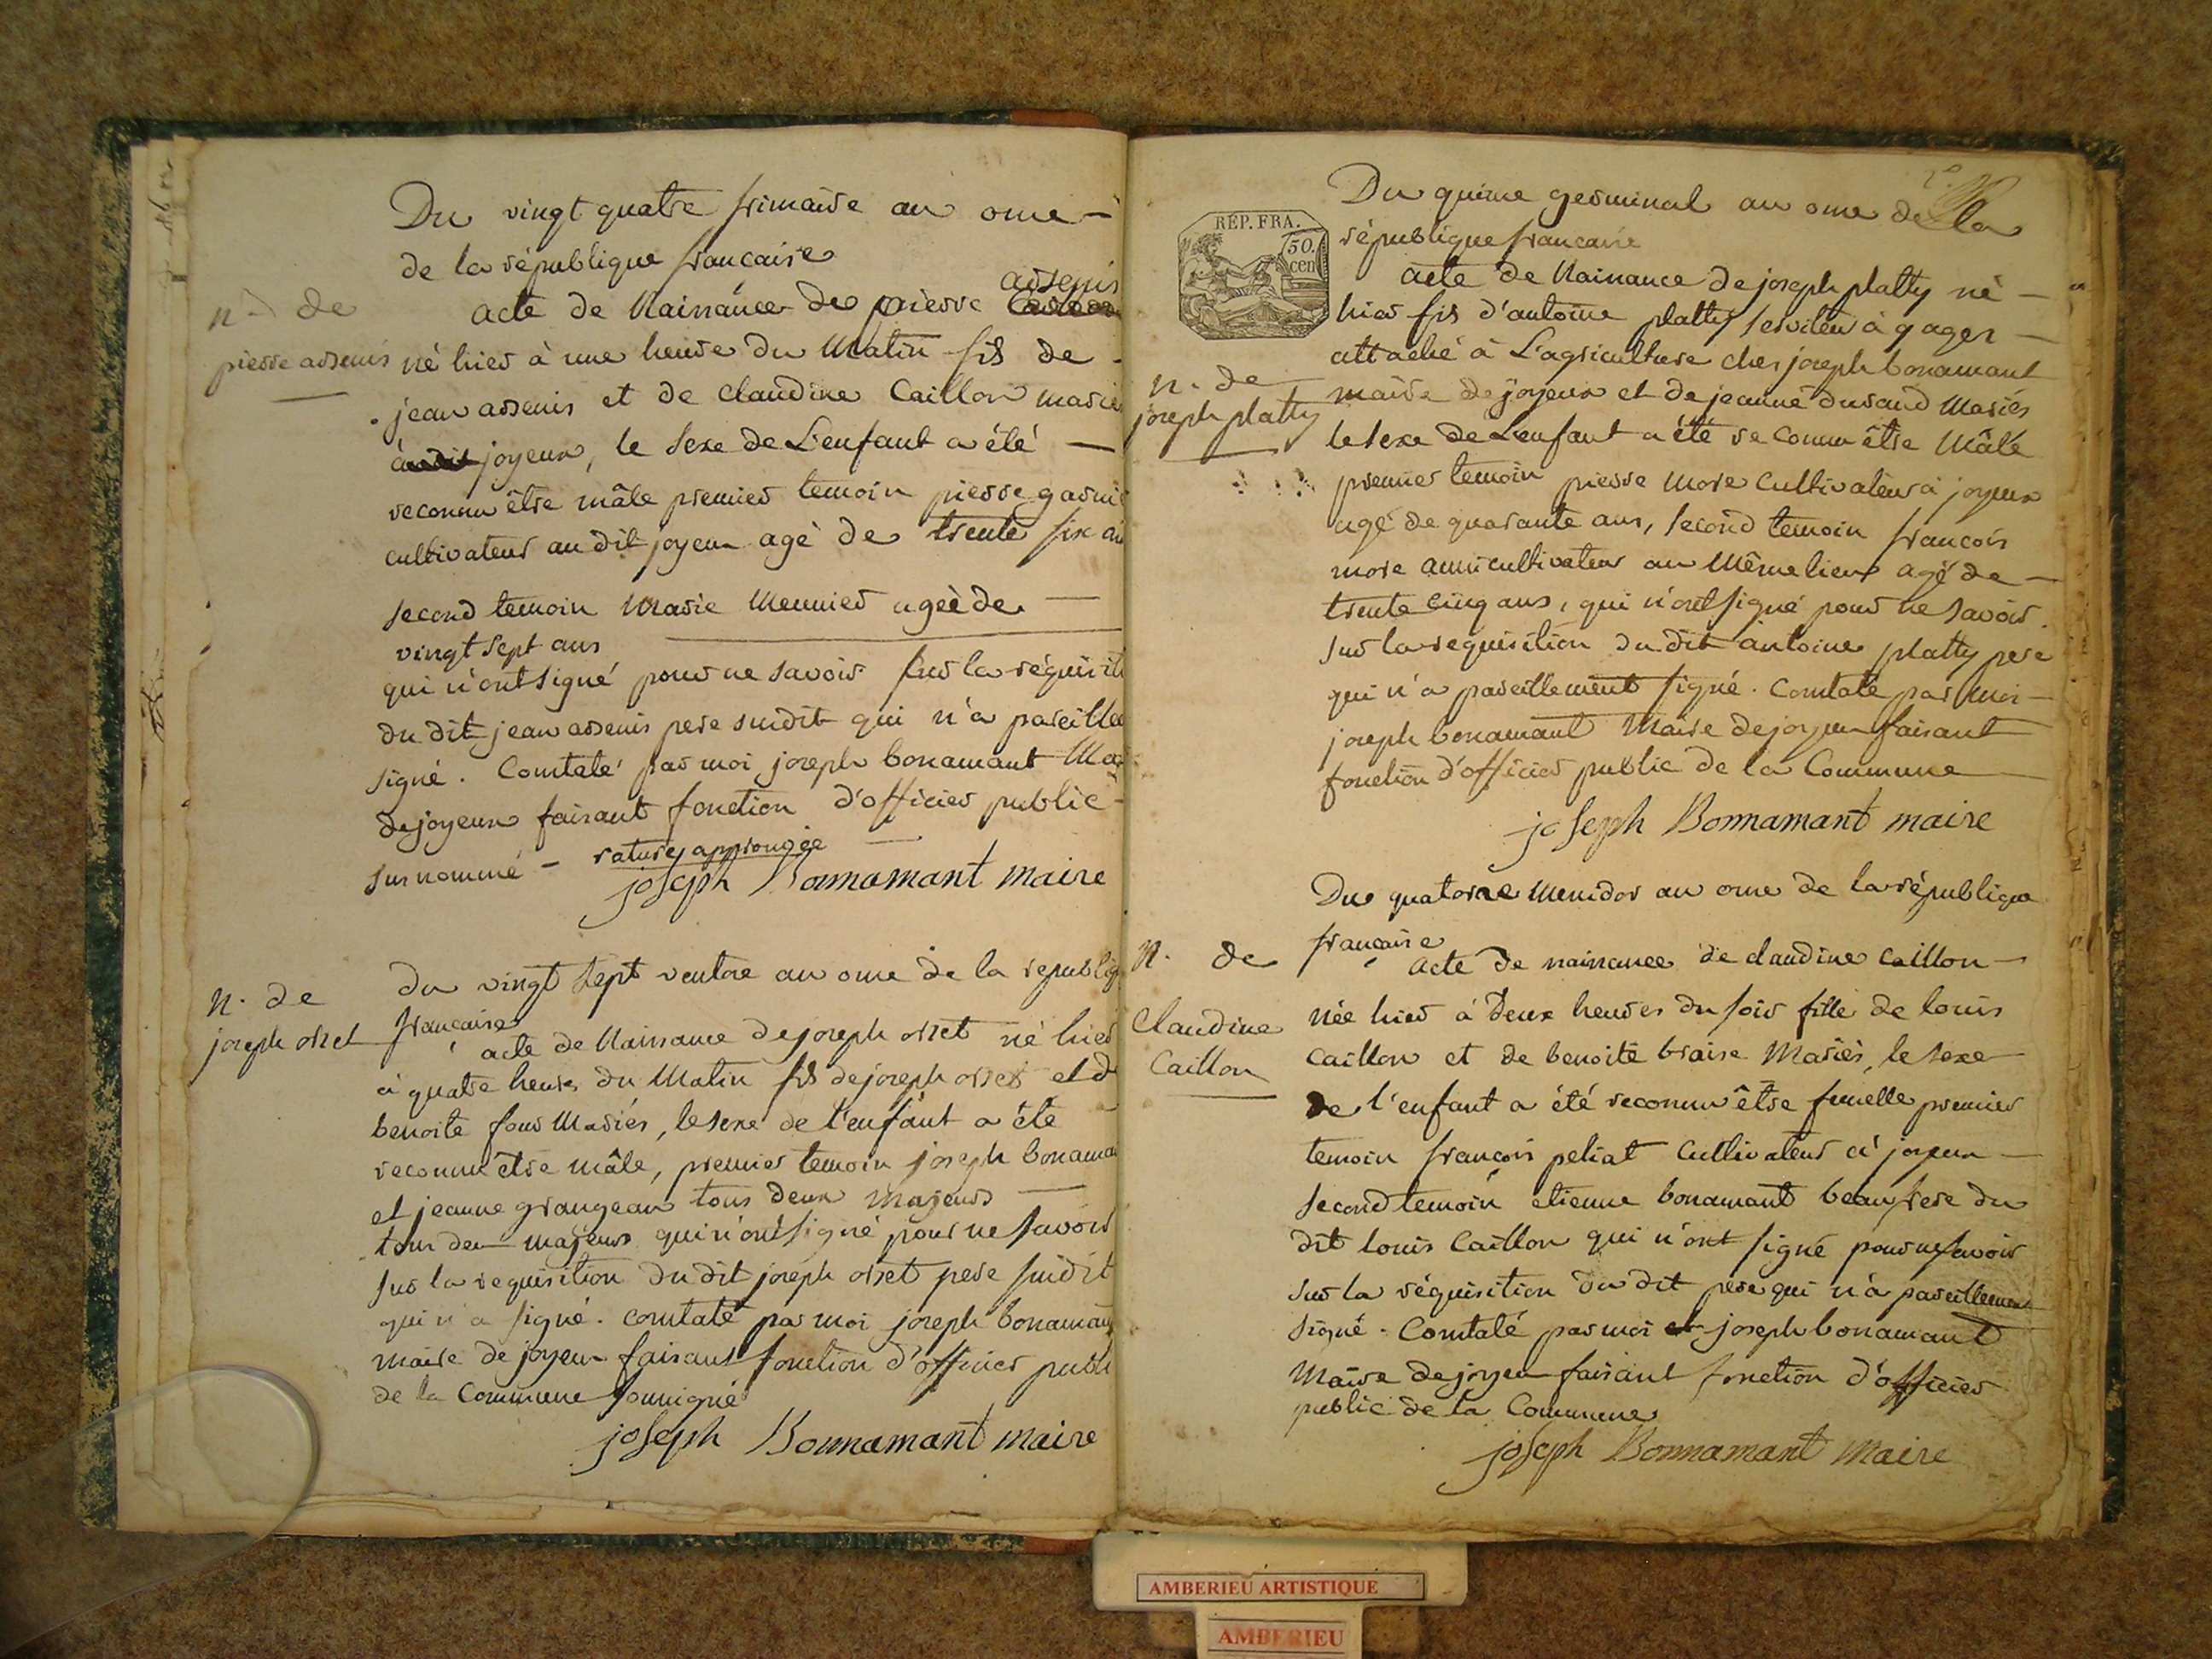 Du vingt quatre frimaire an onze
de la république francaise
arsenis
acte de Naissance de pierre
n. de
pierre arsenis
né hier à une heure du Matin fils de
jean arsenis et de claudine Caillon marié
joyeux, le sexe de L'enfant a été
reconnu être mâle premier temoin pierre garni
cultivateur au dit joyeux agé de trente six an
second temoin Marie Meunier ageè de
vingt sept ans
qui n'ont signé pour ne savoir sur la réquisiti
du dit jean arsenis pere susdit qui n'a pareille
signé. Constaté par moi joseph bonamant Ma
de joyeux faisant fonction d'officier public
surnommé - rature approuvée
joseph Bonnamant maire
du vingt sept ventose an onze de la republiq
n. de
joseph orset
française
acte de Naissance de joseph orset né hier
à quatre heures du Matin fils de joseph orset et d
benoite four Mariés, le sexe de l'enfant a été
reconnu être mâle, premier temoin joseph bonama
et jeanne grangean tous deux Majeurs
tous deux majeurs qui n'ont signé pour ne savoir
sur la requisition du dit joseph orset pere susdit
qui n'a signé. constaté par moi joseph bonaman
maire de joyeux faisant fonction d'officier publi
de la Commune soussigné
joseph Bonnamant maire
Du quinze germinal an onze de la
RÉP. FRA.
50.
cen
république francaise
acte de Naissance de joseph platty né
hier fils d'antoine platty serviteur à gages
attaché à L'agriculture chez joseph bonamant
n. de
joseph platty
maire de joyeux et de jeanne durand Mariés
le sexe de L'enfant a été reconnu être Mâle
premier temoin pierre More Cultivateur à joyeux
agé de quarante ans, second temoin francois
more aussi cultivateur au Même lieu agé de
trente cinq ans, qui n'ont signé pour ne savoir.
sur la requisition du dit antoine platty pere
qui n'a pareillement signé. Constaté par moi
joseph bonamant Maire de joyeux faisant
fonction d'officier public de la Commune
joseph Bonnamant maire
Du quatorze Messidor an onze de la république
n. de
Claudine
Caillon
française
acte de naissance de claudine caillon
née hier à Deux heures du soir fille de louis
caillon et de benoite braise Mariés, le sexe
de l'enfant a été reconnu être femelle premier
temoin françois peliat Cultivateur à joyeux
second temoin etienne bonamant beaufrere du
dit louis Caillon qui n'ont signé pour ne savoir
sur la réquisition du dit pere qui n'a pareillement
signé. Constaté par moi joseph bonamant
Maire de joyeux faisant fonction d'officier
public de la Commune
joseph Bonnamant Maire
AMBERIEU ARTISTIQUE
AMBERIEU